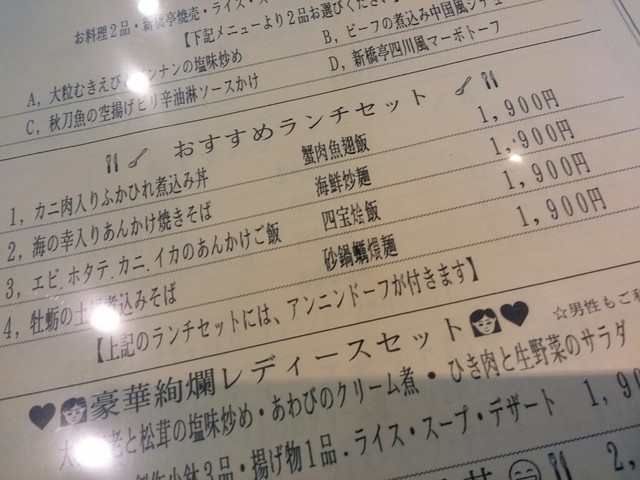 お料理2品・新橋亭焼売・ライス・ス
【下記メニューより2品お選びください
A, 大粒むきえび ンナンの塩味炒め
B, ビーフの煮込み中国風シチュ
C, 秋刀魚の空揚げピリ辛油淋ソースかけ
D, 新橋亭四川風マーボトーフ
おすすめランチセット
1, カニ肉入りふかひれ煮込み丼 蟹肉魚翅飯 1,900円
2, 海の幸入りあんかけ焼きそば 海鮮炒麺 1,900円
3, エビ.ホタテ.カニ.イカのあんかけご飯 四宝烩飯 1,900円
4, 牡蛎の土 煮込みそば 砂鍋蠣煨麺 1,900円
【上記のランチセットには、アンニンドーフが付きます】
豪華絢爛レディースセット ☆男性もご利
大 老と松茸の塩味炒め・あわびのクリーム煮・ひき肉と生野菜のサラダ
小鉢3品・揚げ物1品.ライス・スープ・デザート 1,90
2,